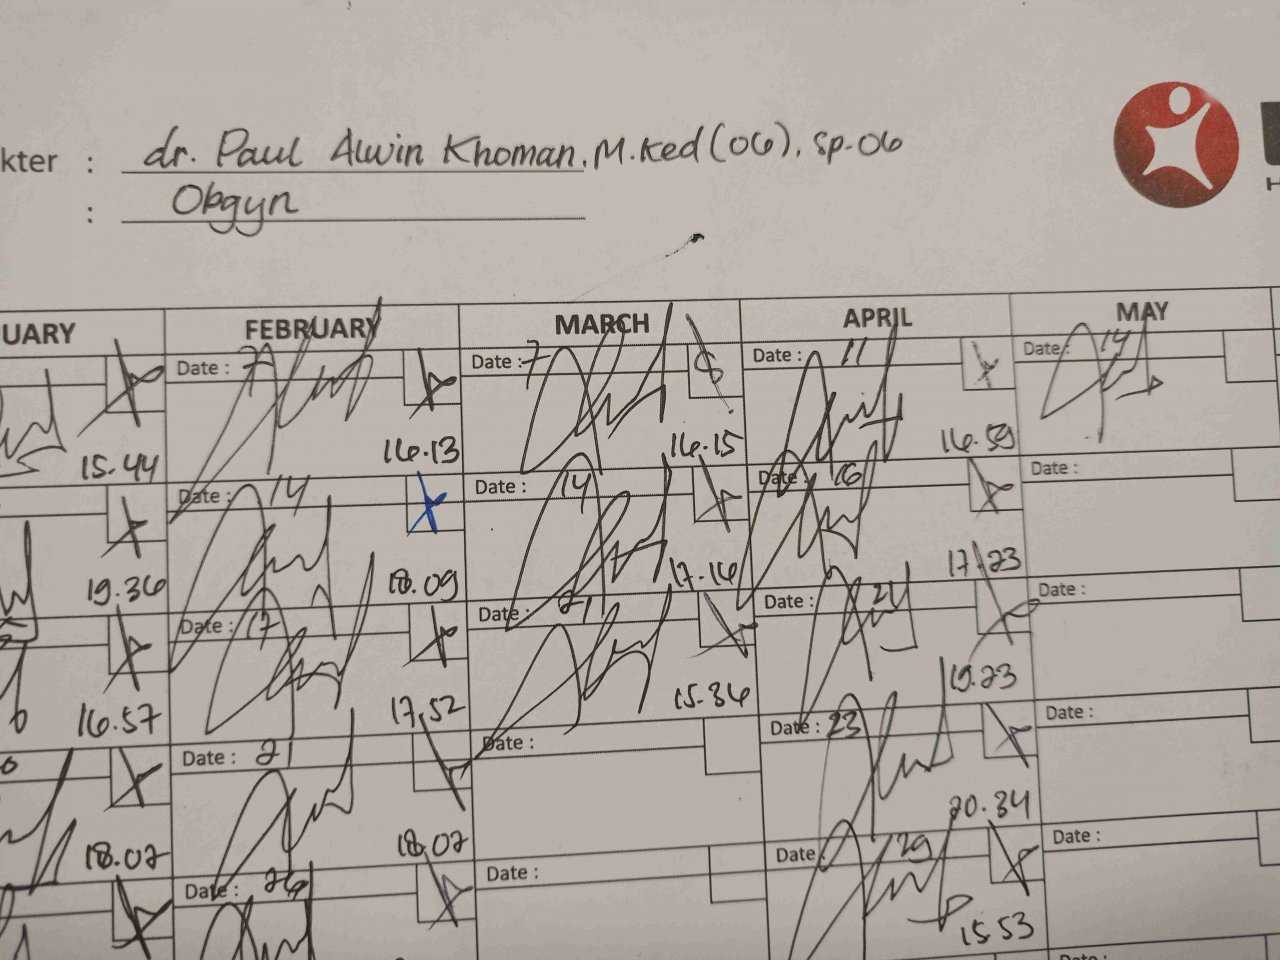 kter : dr. Paul Alwin Khoman, M.Ked(OG), Sp.OG
: Obgyn
UARY FEBRUARY MARCH APRIL MAY
Date : 7 Date : 7 Date : 11 Date : 14
15.44 16.13 16.15 16.59
Date : 14 Date : 14 Date : 16 Date :
19.36 18.09 17.16 17.23
Date : 17 Date : 21 Date : 21 Date :
16.57 17.52 15.36 19.23
Date : 21 Date : Date : 23 Date :
18.02 18.02 20.34
Date : 26 Date : Date : 29 Date :
15.53
Date :